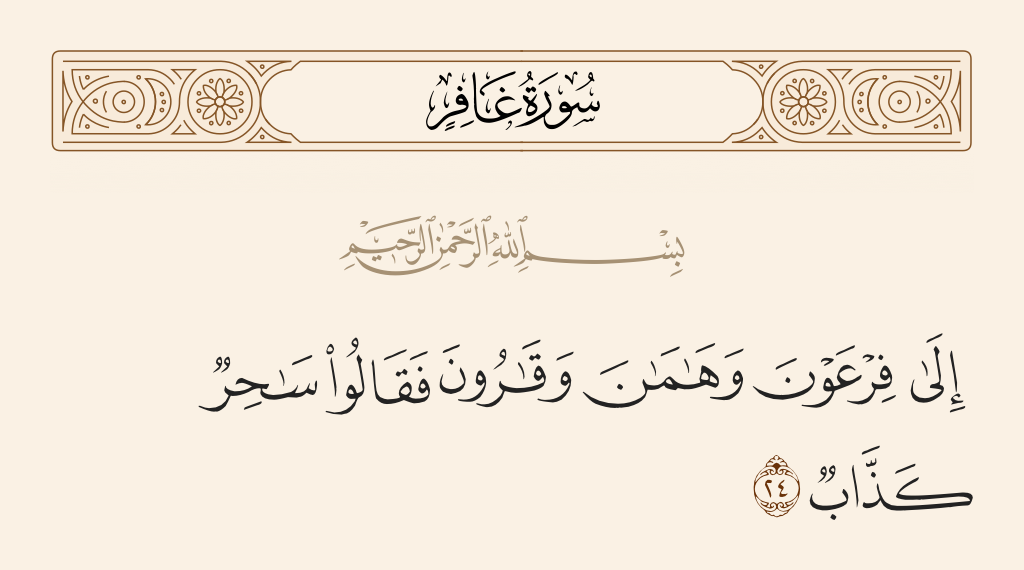 سُورَةُ غَافِرٍ
بِسْمِ ٱللَّهِ ٱلرَّحْمَٰنِ ٱلرَّحِيمِ
إِلَىٰ فِرْعَوْنَ وَهَٰمَٰنَ وَقَٰرُونَ فَقَالُوا۟ سَٰحِرٌ
كَذَّابٌ ٢٤